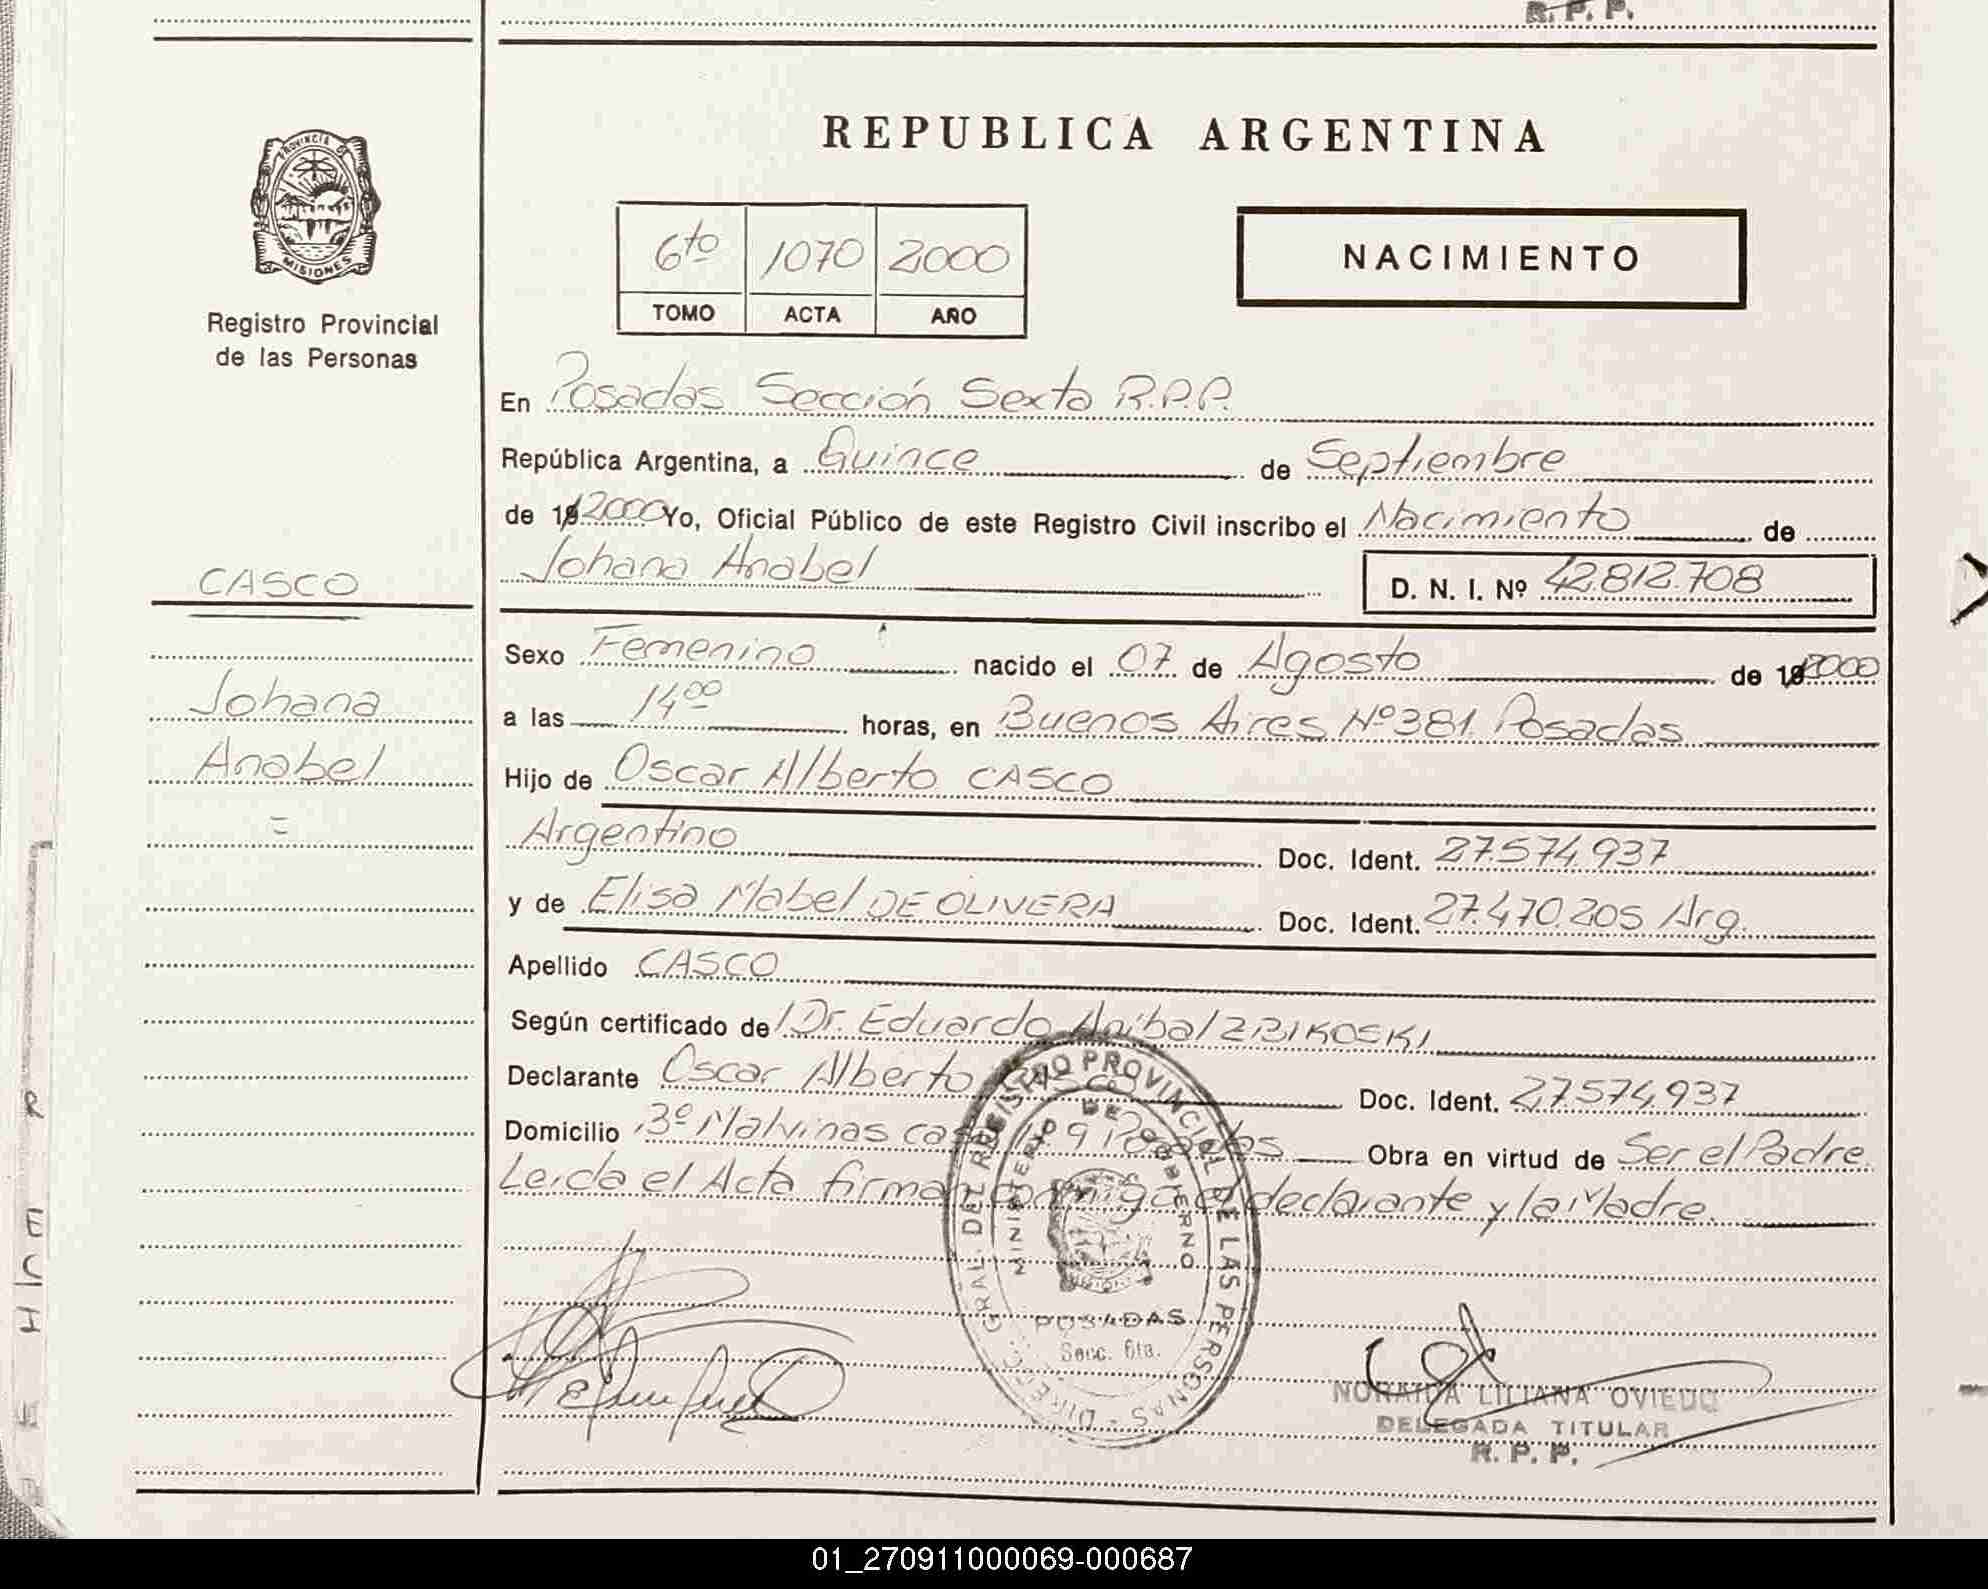 R. P. P.
PROVINCIA DE
MISIONES
Registro Provincial
de las Personas
REPUBLICA ARGENTINA
6to 1070 2000
TOMO ACTA AÑO
NACIMIENTO
En Posadas Sección Sexta R.P.P.
República Argentina, a Quince de Septiembre
de 19 2000 Yo, Oficial Público de este Registro Civil inscribo el Nacimiento de
Johana Anabel D. N. I. Nº 42.812.708
CASCO
Johana
Anabel
=
Sexo Femenino nacido el 07 de Agosto de 19 2000
a las 14⁰⁰ horas, en Buenos Aires Nº 381. Posadas
Hijo de Oscar Alberto CASCO
Argentino Doc. Ident. 27.574.937
y de Elisa Mabel DE OLIVERA Doc. Ident. 27.470.205 Arg.
Apellido CASCO
Según certificado de Dr. Eduardo Anibal ZBIKOSKI
Declarante Oscar Alberto CASCO Doc. Ident. 27.574.937
Domicilio Bº Malvinas casa Nº 9 Posadas Obra en virtud de Ser el Padre.
Leida el Acta firman conmigo el declarante y la Madre.
DIREC. GRAL. DEL REGISTRO PROVINCIAL DE LAS PERSONAS
MINISTERIO DE GOBIERNO
POSADAS
Secc. 6ta.
NORAIDA LILIANA OVIEDO
DELEGADA TITULAR
R. P. P.
01_270911000069-000687